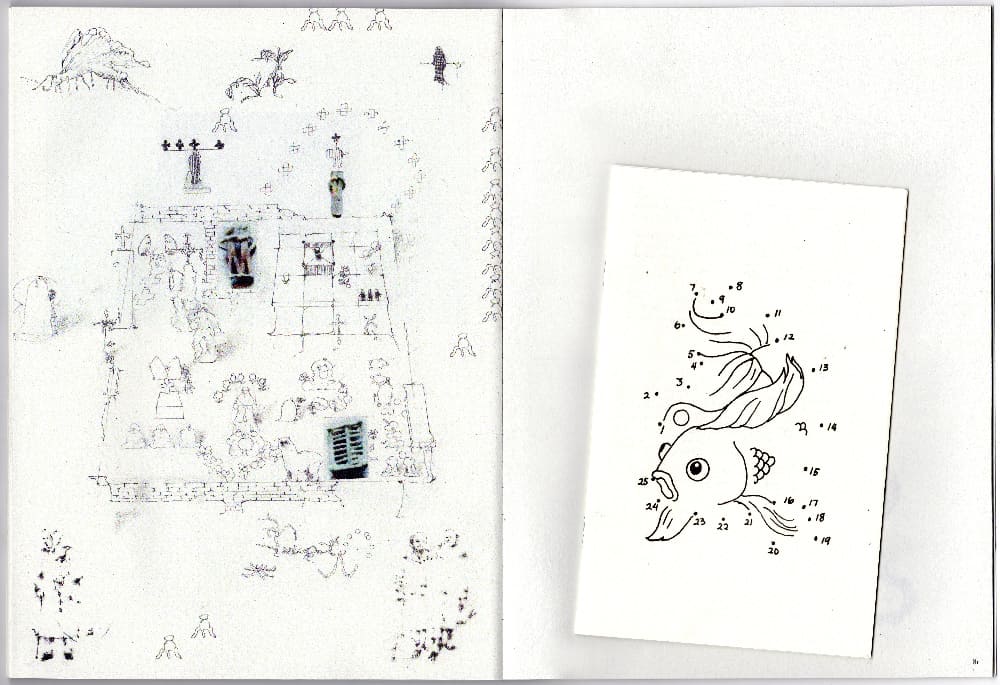 7 8
9
10
11
6
12
5
4
13
3
2
1
14
15
25
16
17
24
18
23
22
21
19
20